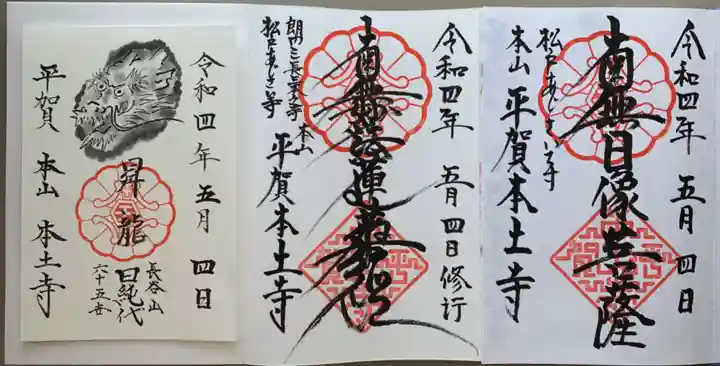 令和四年 五月 四日
昇龍
長谷山
日純代
六十五世
平賀 本山 本土寺
令和四年 五月 四日修行
朗門三長三本
本山
松戸あじさい寺
平賀本土寺
令和四年 五月 四日
南無日像菩薩
松戸あじさい寺
本山 平賀本土寺